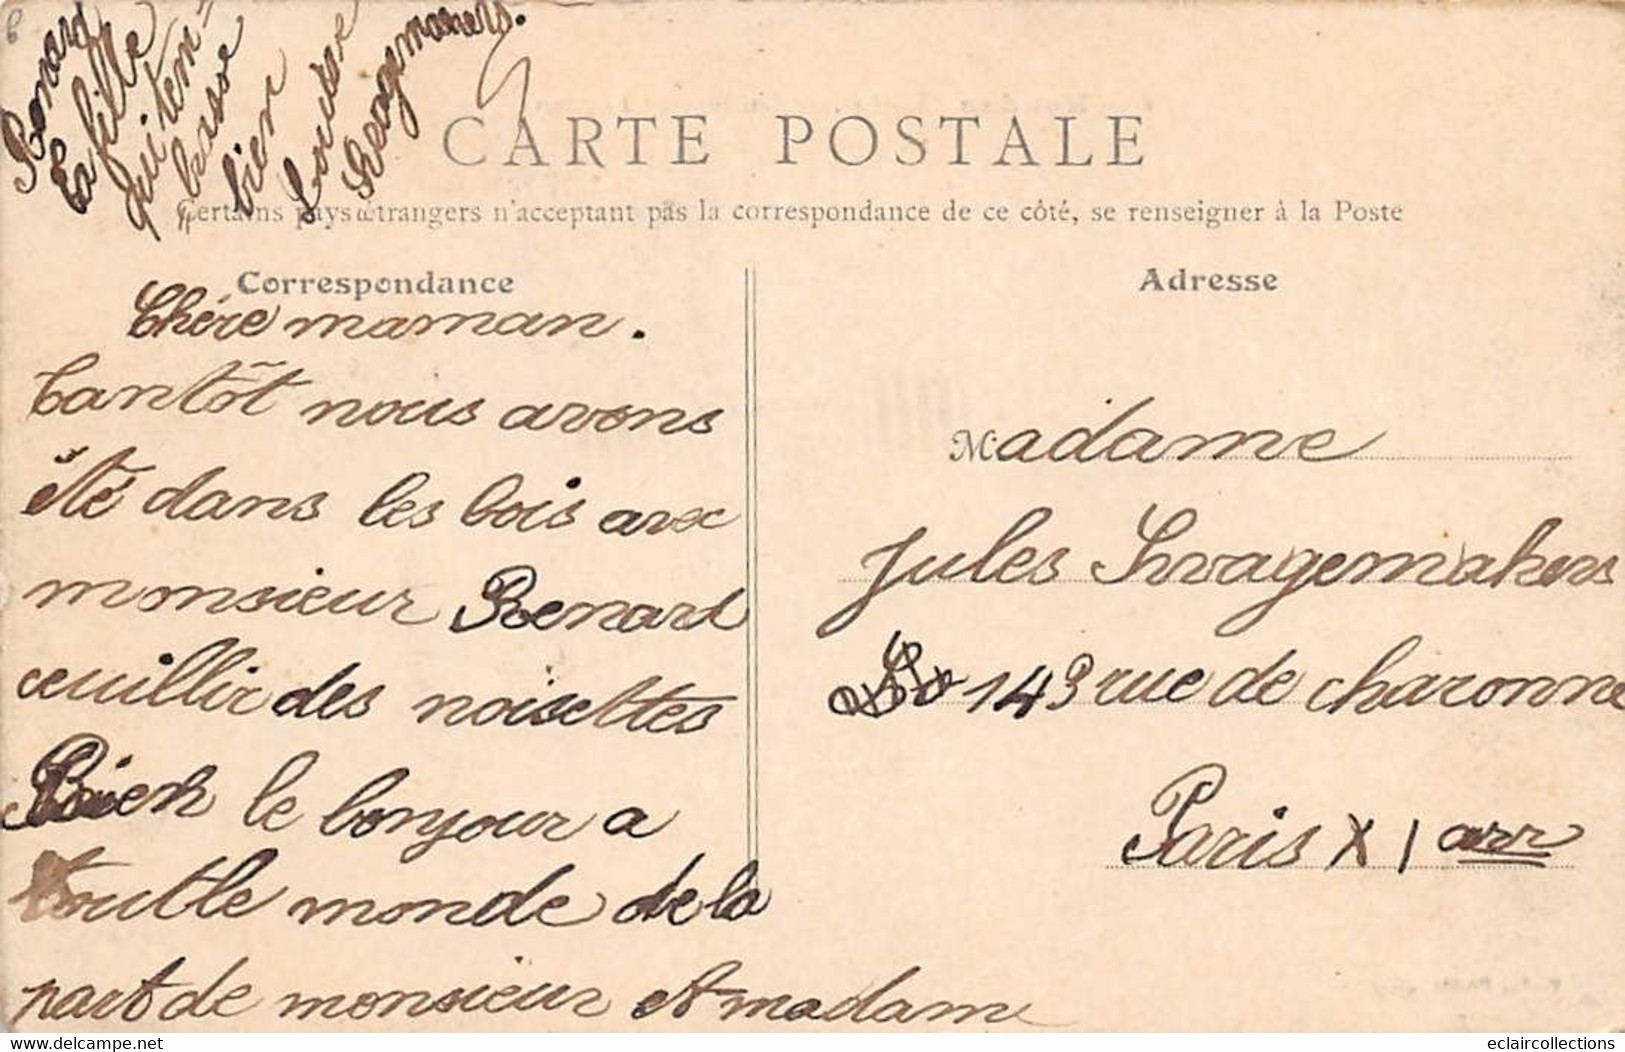 CARTE POSTALE
Certains pays étrangers n'acceptant pas la correspondance de ce côté, se renseigner à la Poste
Correspondance
Chére maman.
tantôt nous avons
été dans les bois avec
monsieur Renard
ceuillir des noisettes
Bien le bonjour a
toutle monde de la
part de monsieur et madam
Renard
ta fille
qui tem-
brasse
bien
Louise
Swagemakers.
Adresse
Madame
Jules Swagemakers
143 rue de charonne
Paris XI arr
eclaircollections